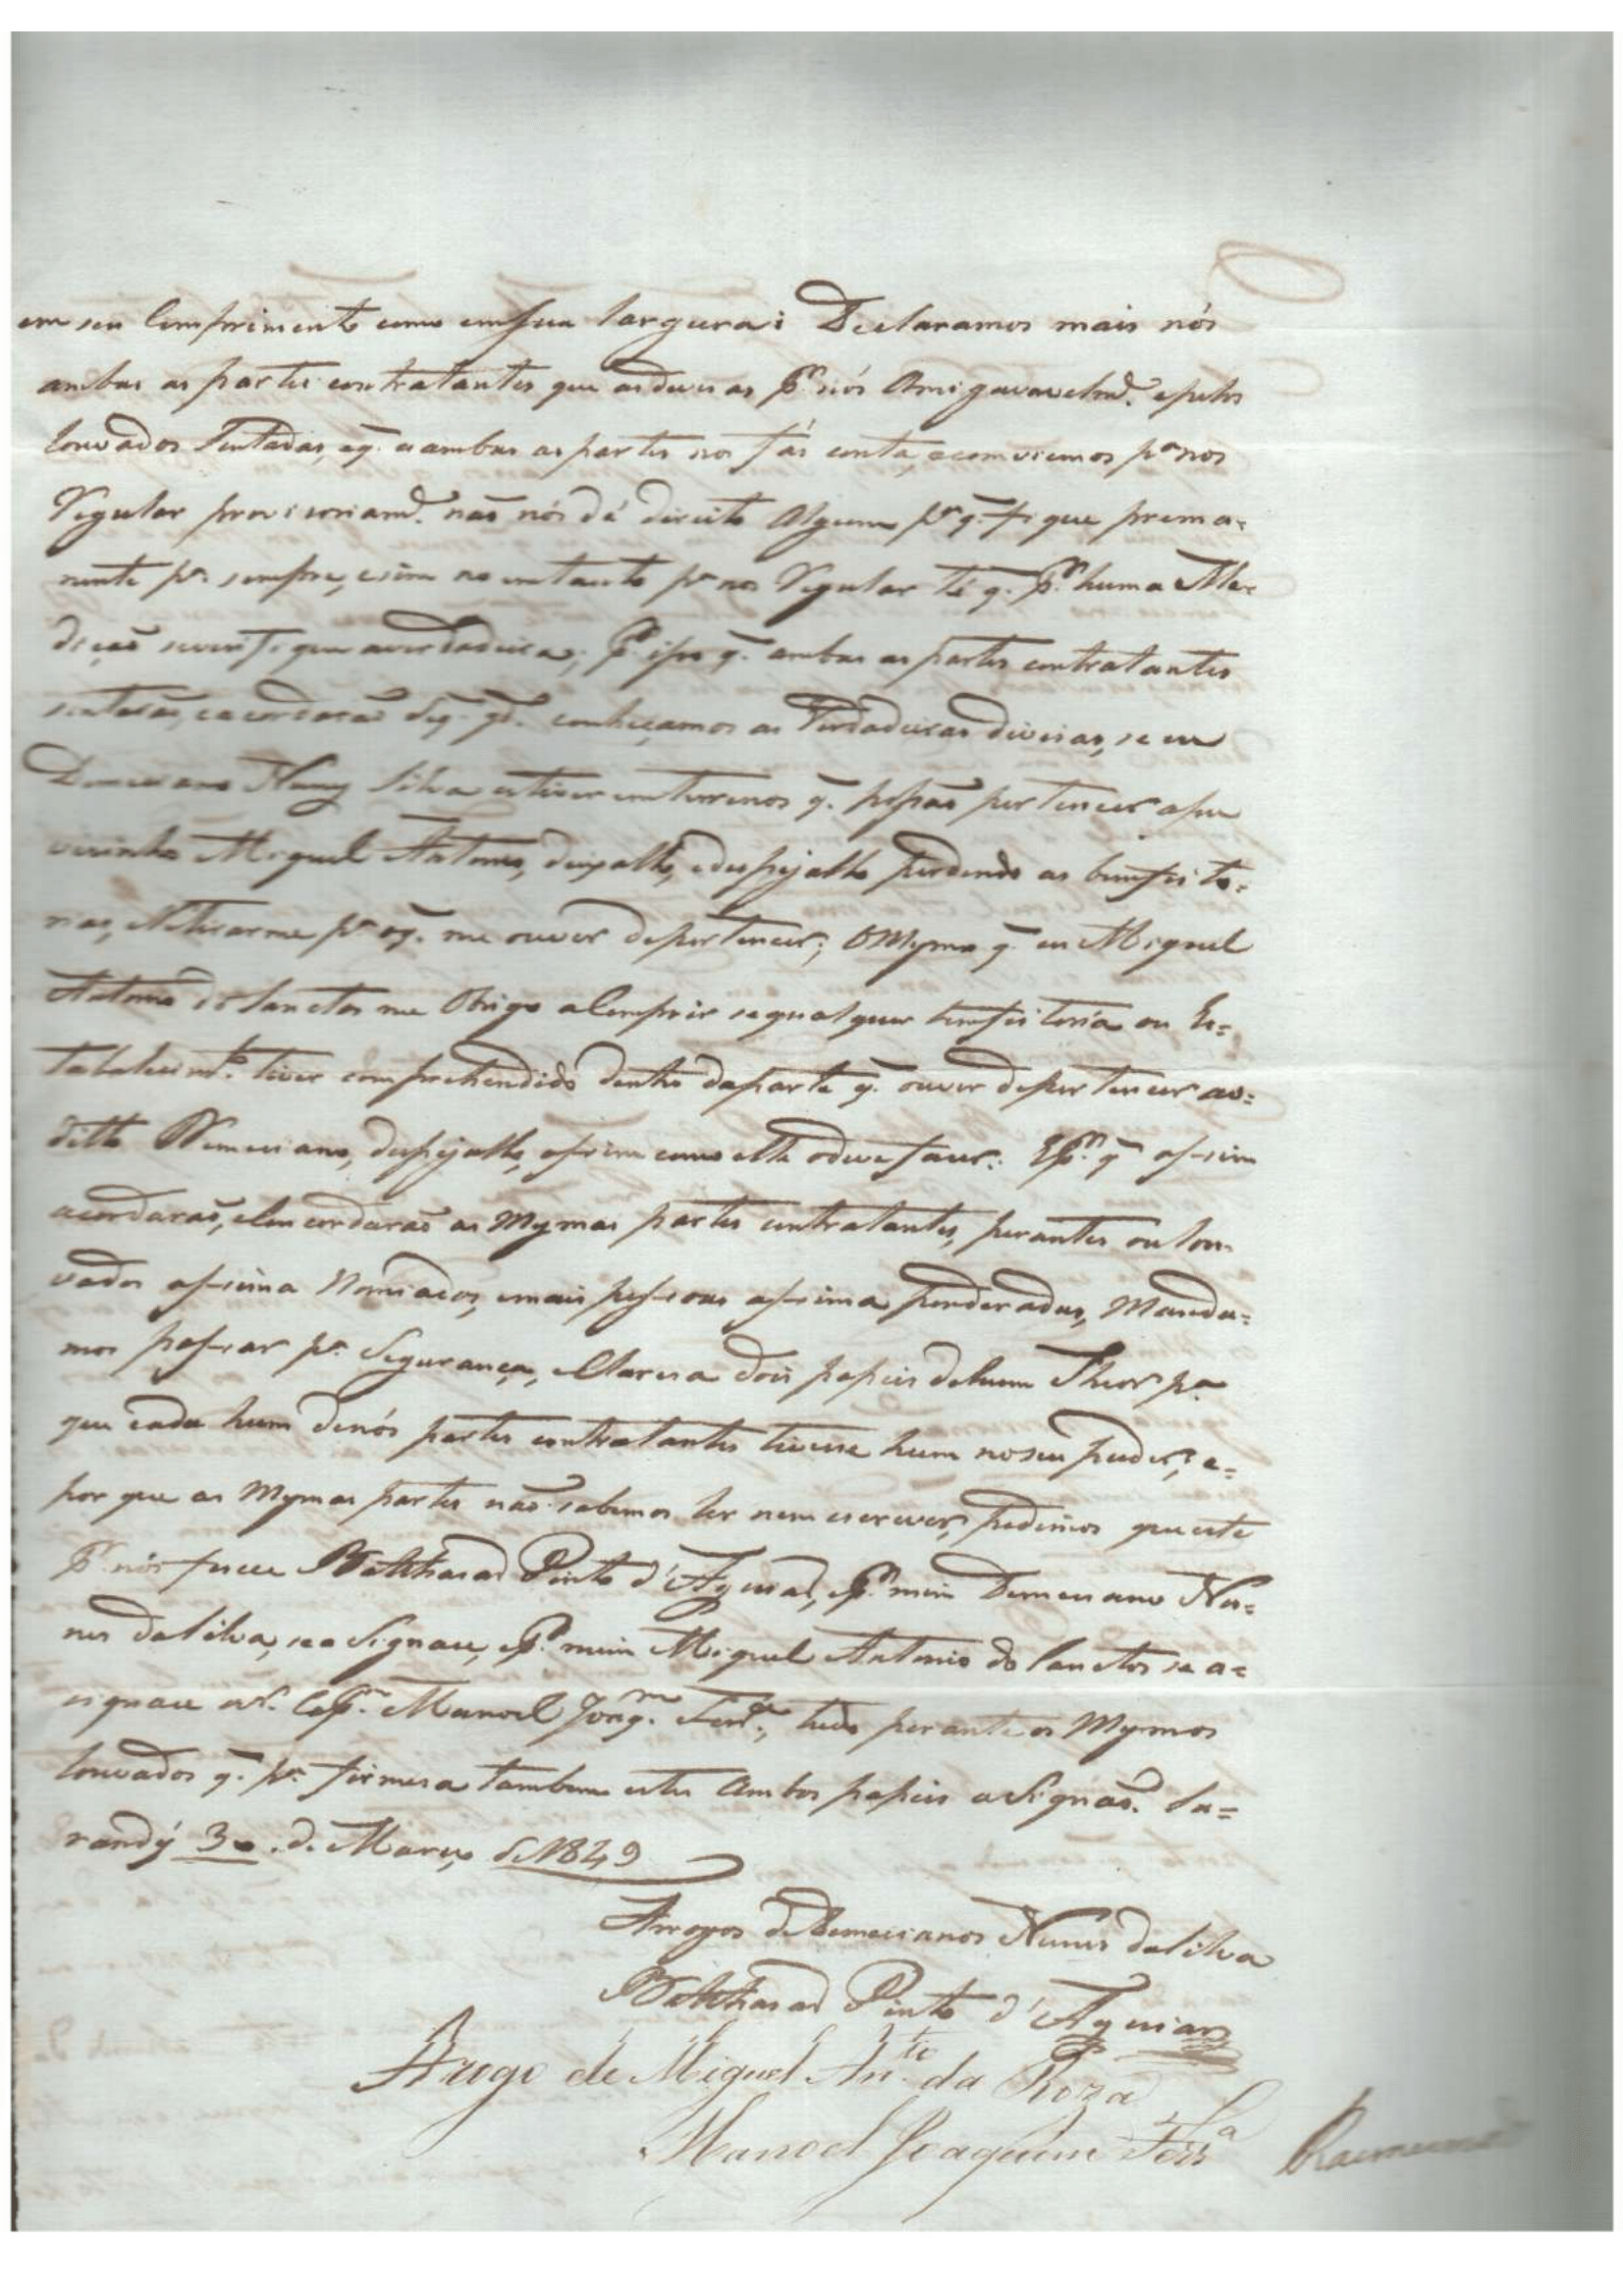 em seu Comprimento como em sua largura: Declaramos mais nós
ambas as partes contratantes que as devisas Pr. nós Amigavavelmde. e pelos
louvados Sentadas, e q. a ambas as partes nos fás conta, e comviemos pa. nos
Regular provisoriamde. naõ nós dá direito Algum pa. q. fique prema=
nente pa. sempre, e sim no emtanto pa. nos Regular té q. Pr. huma Me=
diçaõ se verifique a verdadeira; Pr. isso q. ambas as partes contratantes
e acordaraõ q. conheçamos as Verdadeiras divisas, se eu
Demeciano Nunes Silva estiver em terrenos q. possaõ pertencer a seu
visinho Miguel Antonio, deixallo, e despejallo perdendo as bemfeito=
rias, e Retirarme pa. o q. me ouver de pertencer; O Mesmo q. eu Miguel
Antonio dos Sanctos me Obrigo a Comprir se qualquer bemfeitoria ou Es=
tabalecimto. tiver comprehendido dentro da parte q. ouver de pertencer ao=
ditto Demeciano, despejallo, assim como elle o deve fazer: E Pr. q assim
acordaraõ, e Concordaraõ as Mesmas partes contratantes, perantes ou lou=
vados assima Nomiados, e mais pessoas assima ponderadas, Manda=
mos passar pa. Segurança, e Claresa dois papeis de hum Theor pa.
que cada hum de nós partes contratantes tivese hum no seu puder, e=
por que as Mesmas partes naõ sabemos ler nem escrever, pedimos que este
Pr. nós fizese Balthasar Pinto d'Aguiar, e Pr. mim Demeciano Nu=
nes da Silva, se a Signace, e Pr. mim Miguel Antonio do Sanctos se a=
signace o Sr. Capm. Manoel Joaqm. Ferra., tudo perante os Mesmos
louvados q. pa. firmesa tambem estes Ambos papeis a Signaõ. Sa=
randÿ 30 . de Março de 1849
Arrogos de Demecianos Nunes da Silva
Balthasar Pinto d'Aguiar
Arogo de Miguel Anto. da Roza
Manoel Joaquim Ferra